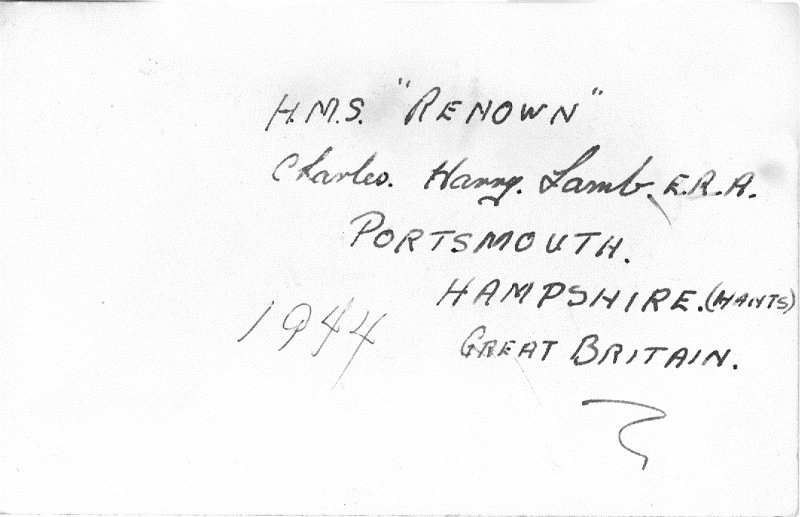 H.M.S. "RENOWN"
Charles. Harry. Lamb. E.R.A.
PORTSMOUTH.
HAMPSHIRE. (HANTS)
1944
GREAT BRITAIN.